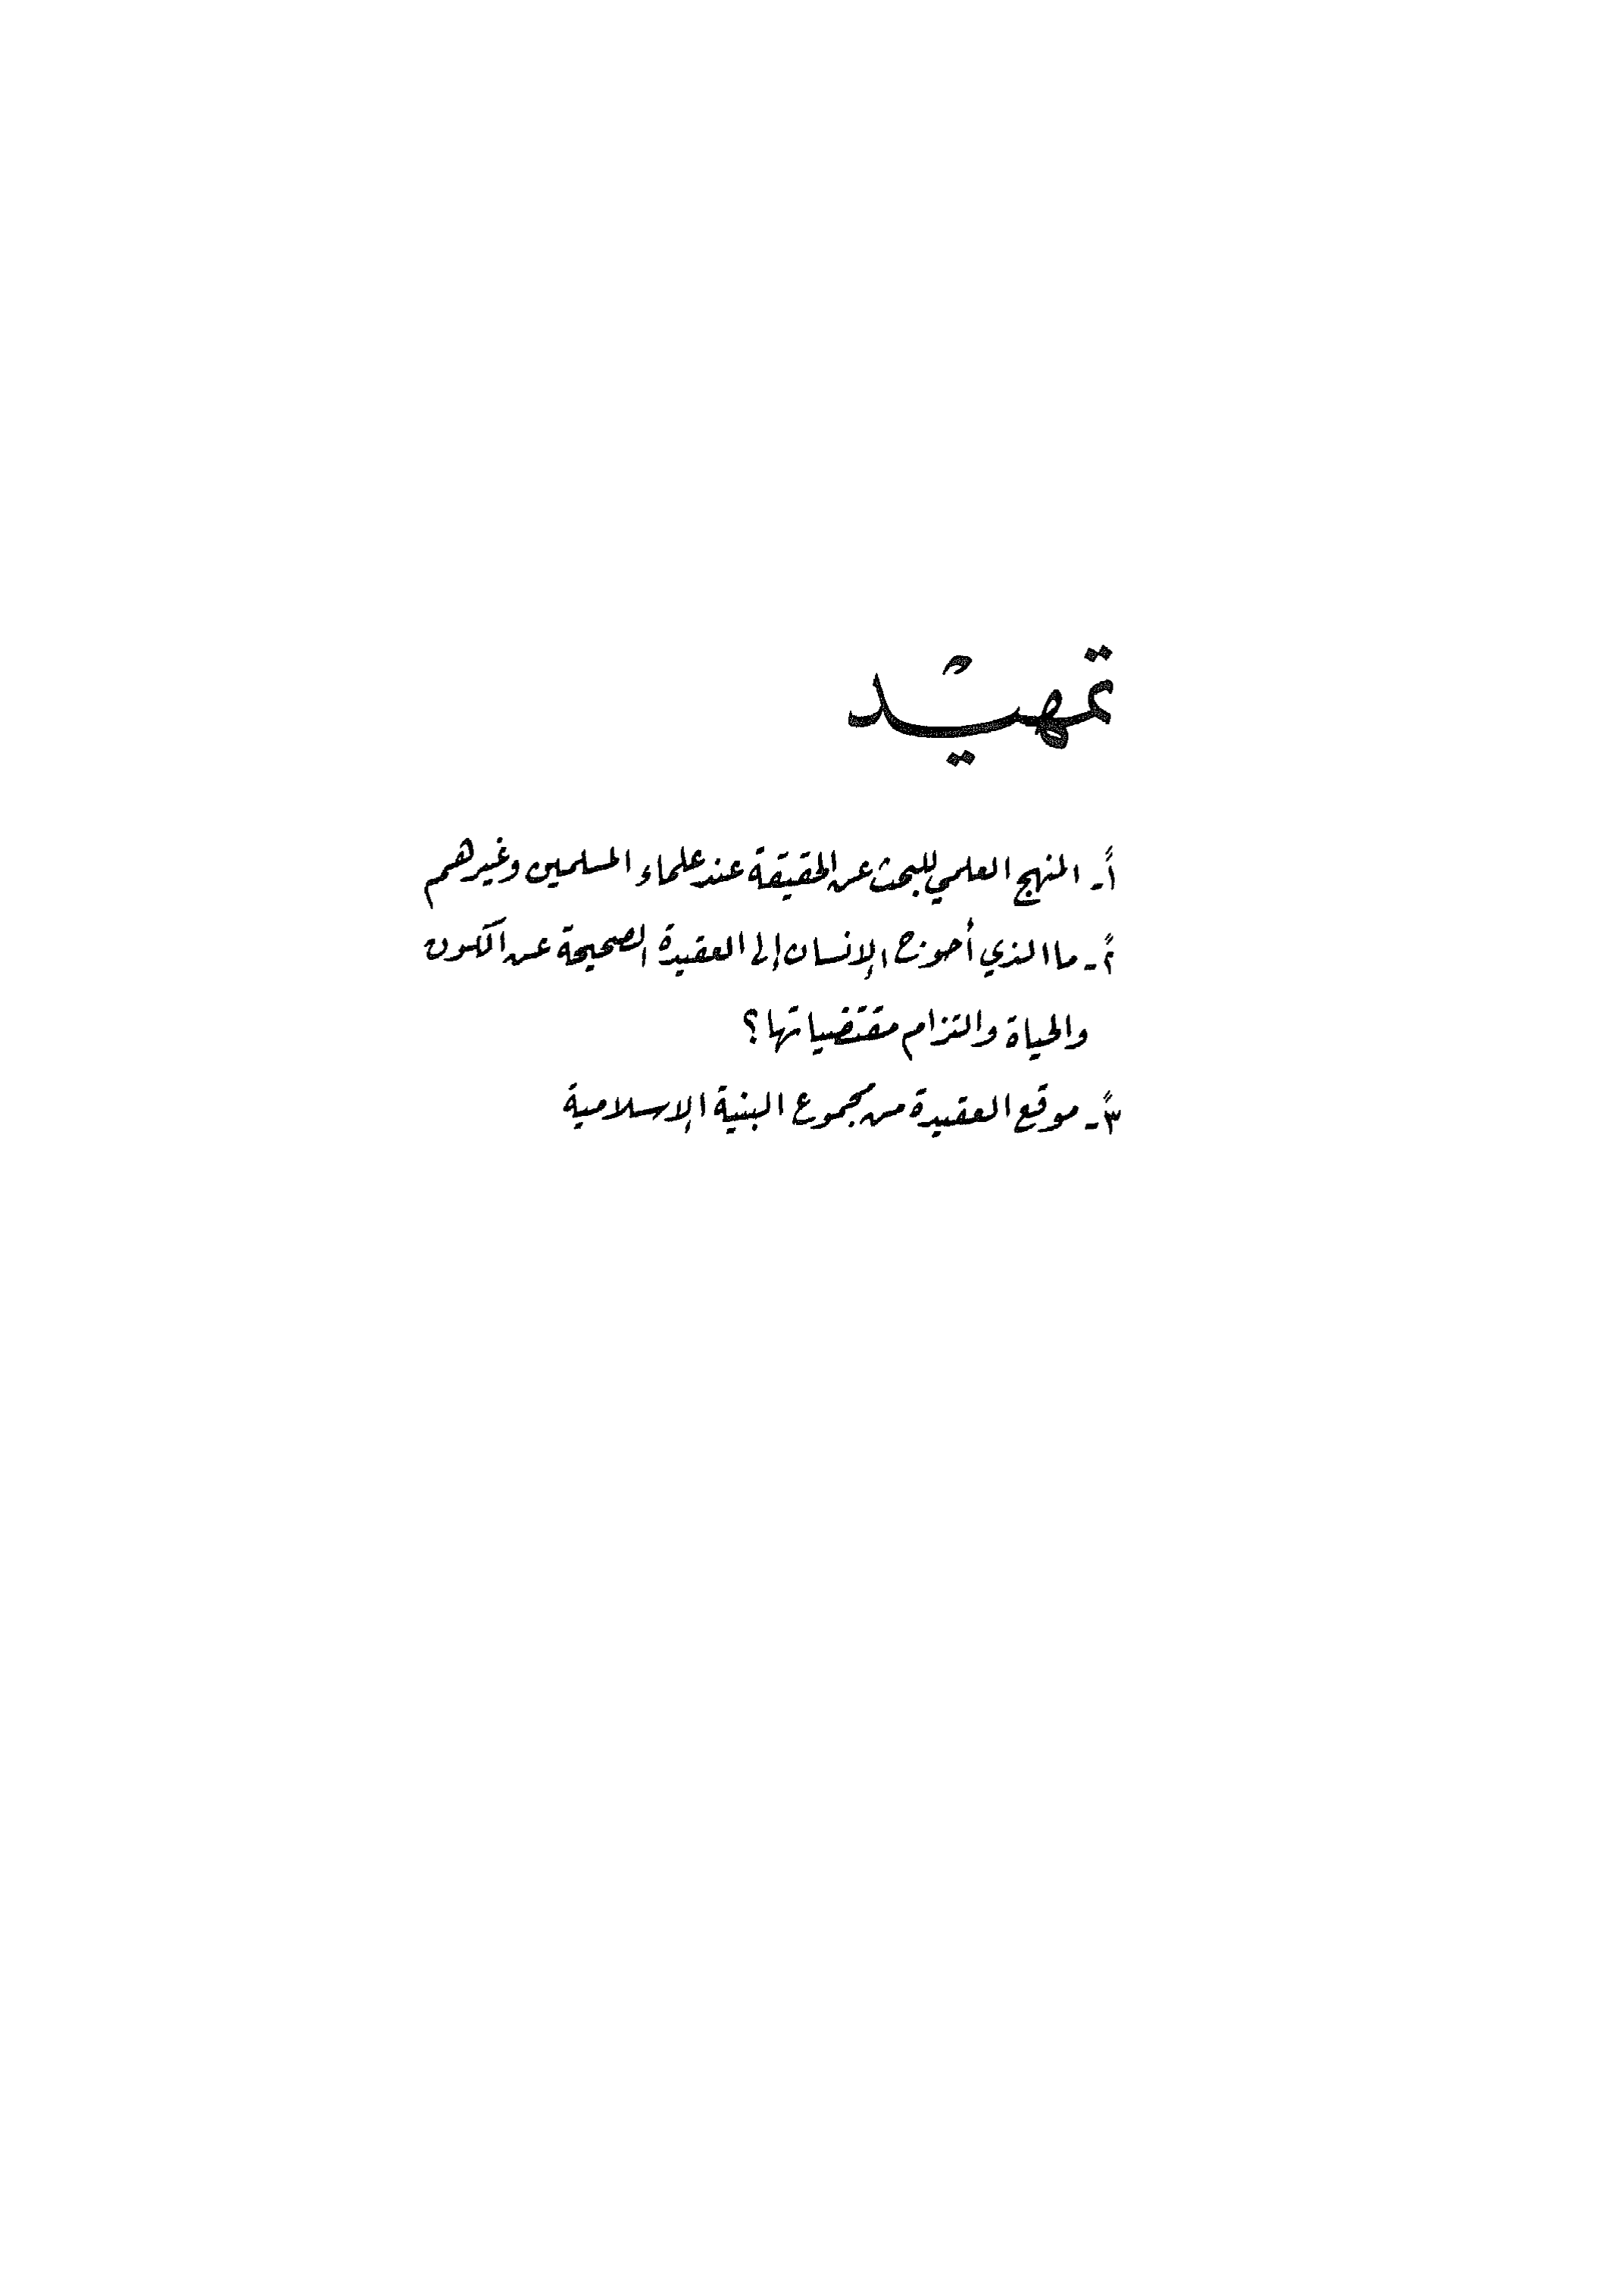 تمهيد
١ً- المنهج العلمي للبحث عن الحقيقة عند علماء المسلمين وغيرهم
٢ً- ما الذي أحوج الإنسان إلى العقيدة الصحيحة عن الكون
والحياة والتزام مقتضياتها؟
٣ً- موقع العقيدة من مجموع البنية الإسلامية